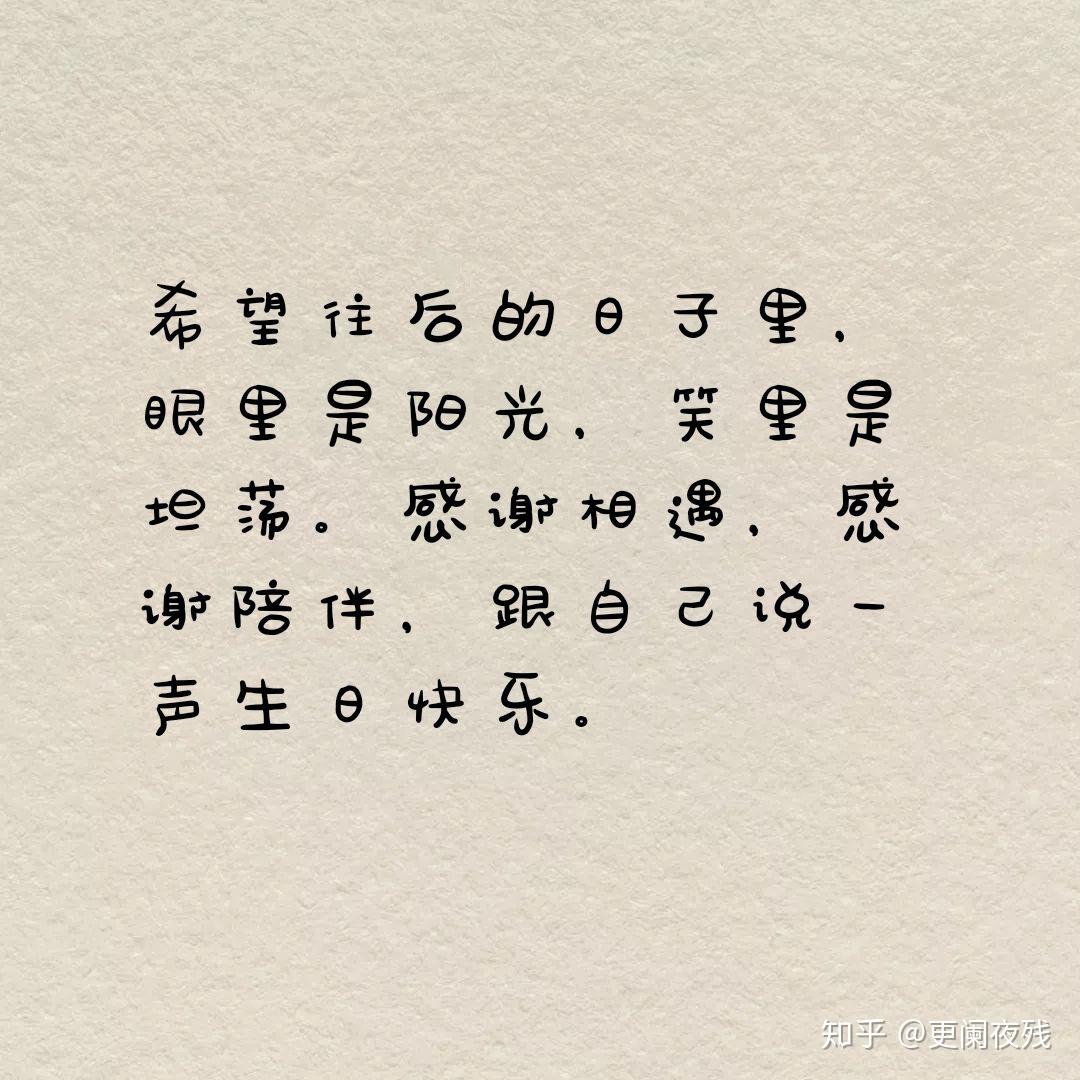 希望往后的日子里，
眼里是阳光， 笑里是
坦荡。 感谢相遇， 感
谢陪伴， 跟自己说一
声生日快乐。
知乎 @更阑夜残